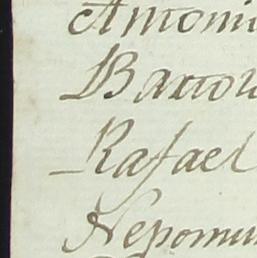 Antoni
Barto
Rafael
Nepomu